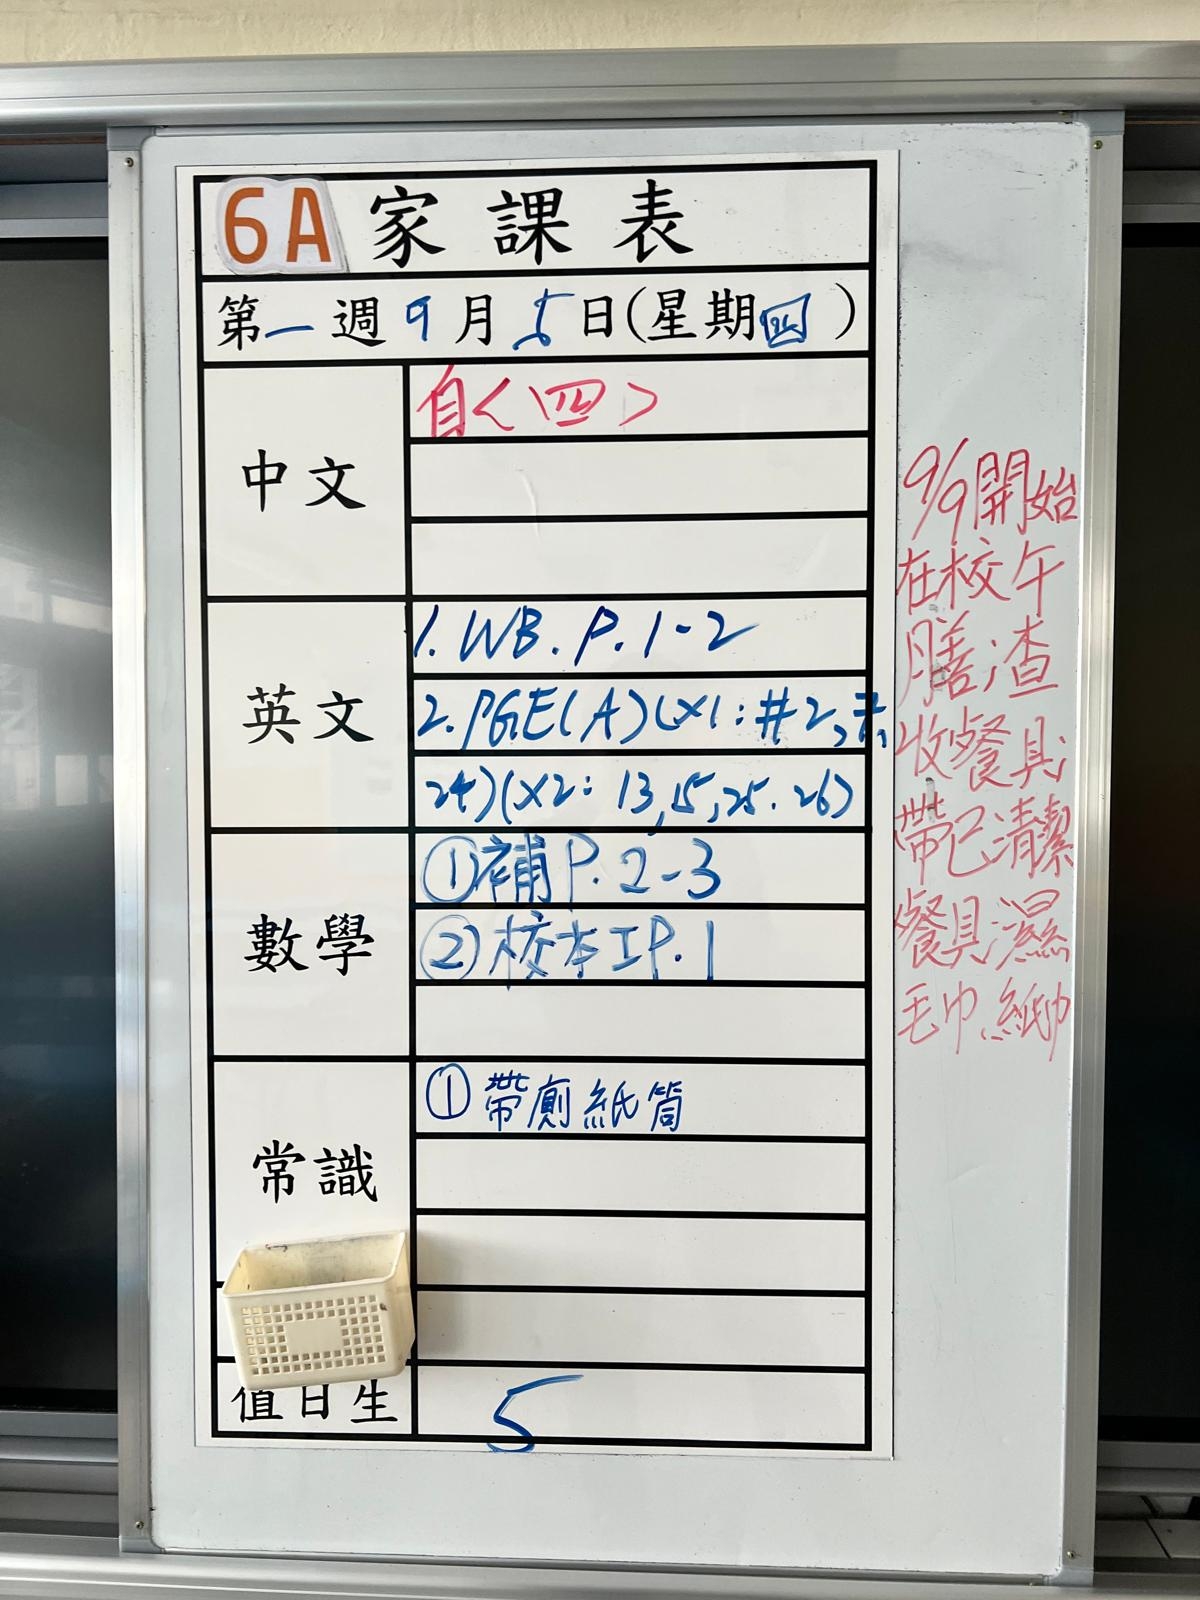 6A 家課表
第一週9月5日(星期四)
中文
自<四>
英文
1. WB. P. 1-2
2. PGE(A)(X1: #2,
24)(X2: 13,15,25. 26)
數學
① 補P. 2-3
② 校本IP. 1
常識
① 帶廁紙筒
值日生
5
9/9開始
在校午
膳渣
收餐具
帶已清潔
餐具濕
毛巾、紙巾